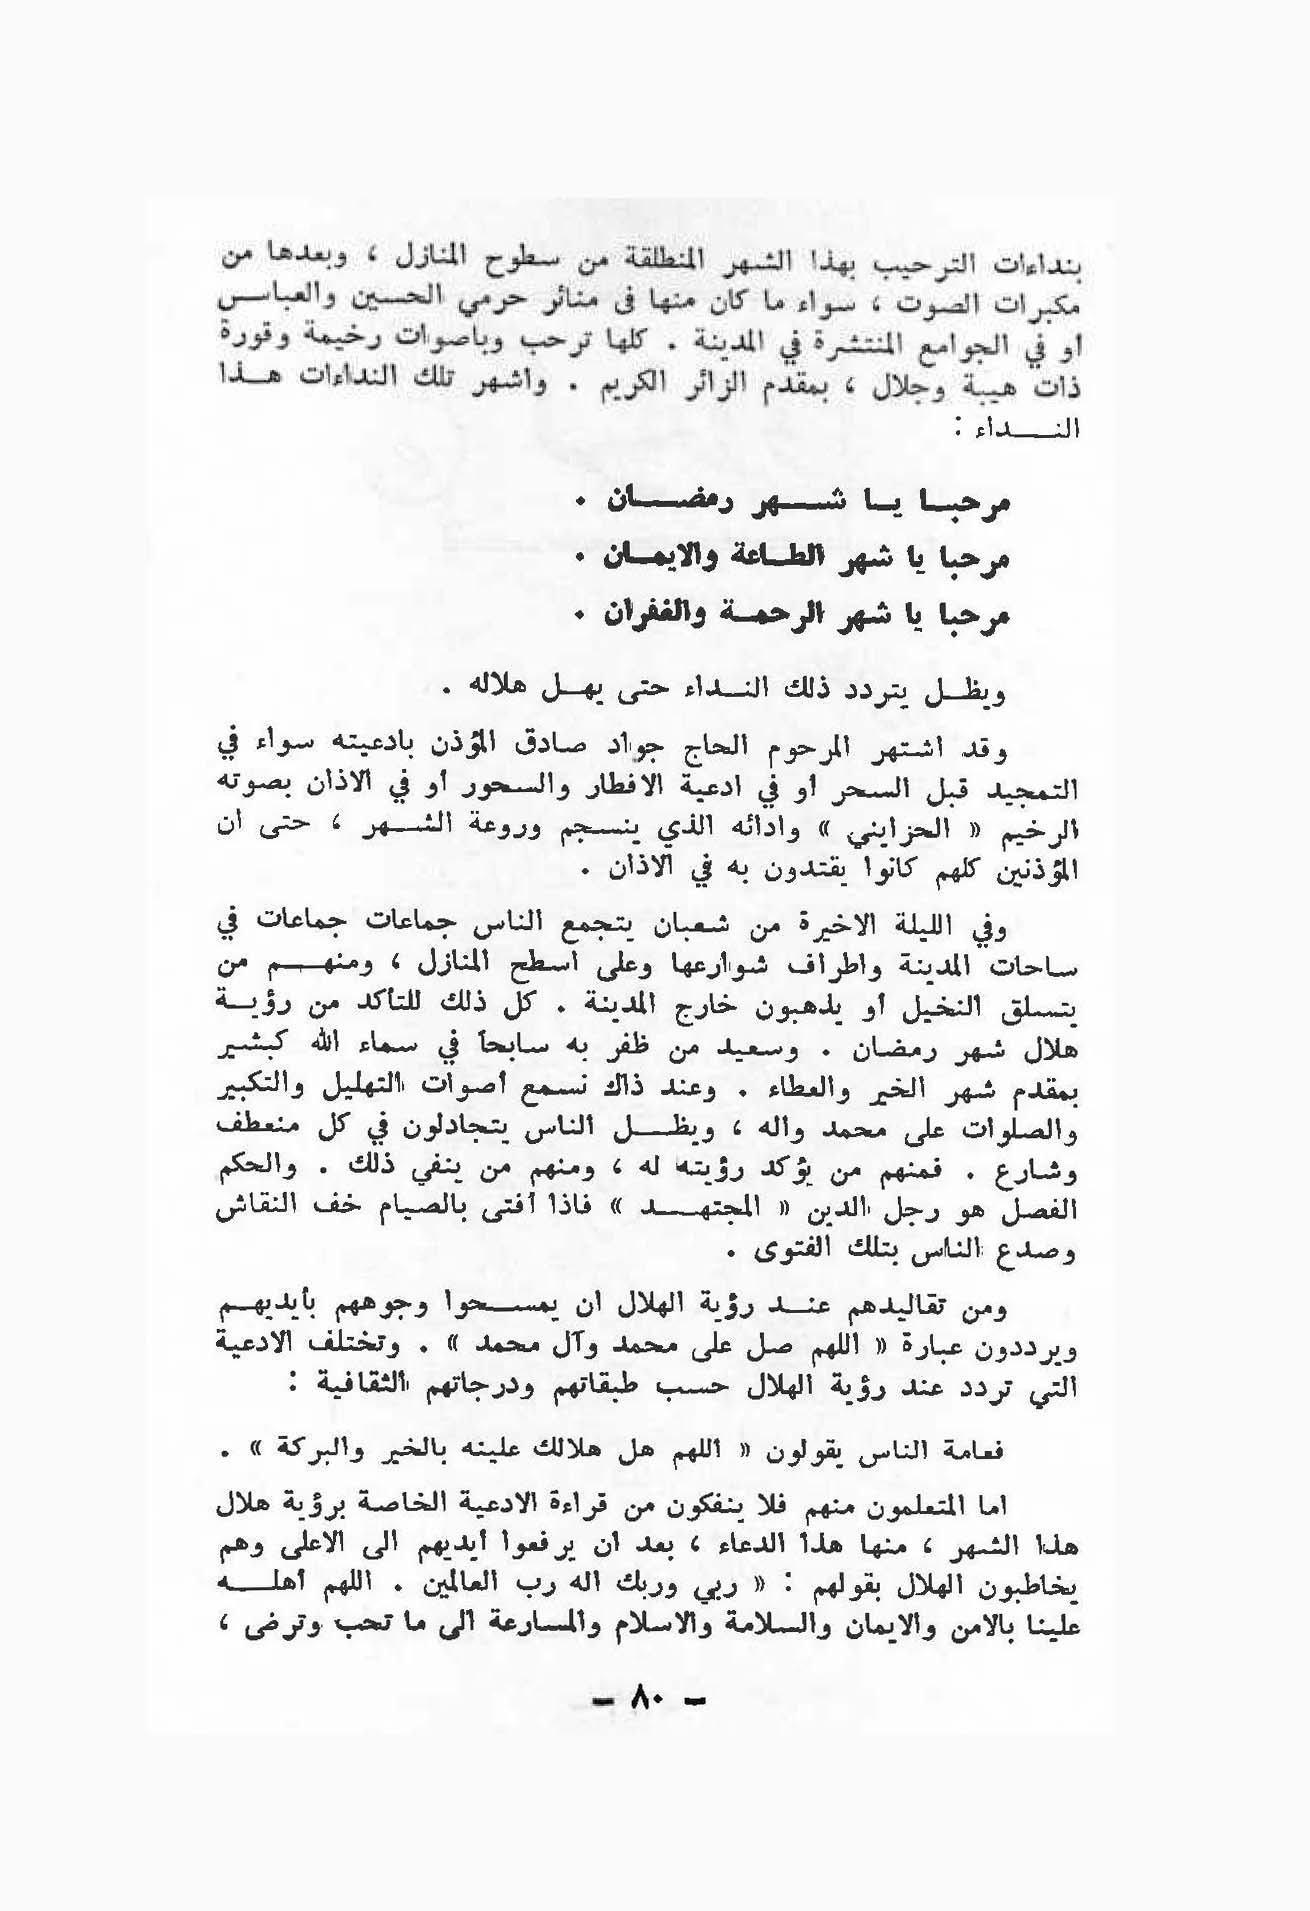 بنداءات الترحيب بهذا الشهر المنطلقة من سطوح المنازل ، وبعدها من
مكبرات الصوت ، سواء ما كان منها في منائر حرمي الحسين والعباس
أو في الجوامع المنتشرة في المدينة . كلها ترحب وباصوات رخيمة وقورة
ذات هيبة وجلال ، بمقدم الزائر الكريم . واشهر تلك النداءات هذا
النداء :
مرحبا يا شهر رمضان .
مرحبا يا شهر الطاعة والايمان .
مرحبا يا شهر الرحمة والغفران .
ويظل يتردد ذلك النداء حتى يهل هلاله .
وقد اشتهر المرحوم الحاج جواد صادق المؤذن بادعيته سواء في
التمجيد قبل السحر أو في ادعية الافطار والسحور أو في الاذان بصوته
الرخيم « الحزايني » وادائه الذي ينسجم وروعة الشهر ، حتى ان
المؤذنين كلهم كانوا يقتدون به في الاذان .
وفي الليلة الاخيرة من شعبان يتجمع الناس جماعات جماعات في
ساحات المدينة واطراف شوارعها وعلى اسطح المنازل ، ومنهم من
يتسلق النخيل أو يذهبون خارج المدينة . كل ذلك للتأكد من رؤية
هلال شهر رمضان . وسعيد من ظفر به سابحاً في سماء الله كبشير
بمقدم شهر الخير والعطاء . وعند ذاك نسمع أصوات التهليل والتكبير
والصلوات على محمد واله ، ويظل الناس يتجادلون في كل منعطف
وشارع . فمنهم من يؤكد رؤيته له ، ومنهم من ينفي ذلك . والحكم
الفصل هو رجل الدين « المجتهد » فاذا أفتى بالصيام خف النقاش
وصدع الناس بتلك الفتوى .
ومن تقاليدهم عند رؤية الهلال ان يمسحوا وجوههم بأيديهم
ويرددون عبارة « اللهم صل على محمد وآل محمد » . وتختلف الادعية
التي تردد عند رؤية الهلال حسب طبقاتهم ودرجاتهم الثقافية :
فعامة الناس يقولون « اللهم هل هلالك علينه بالخير والبركة » .
اما المتعلمون منهم فلا ينفكون من قراءة الادعية الخاصة برؤية هلال
هذا الشهر ، منها هذا الدعاء ، بعد ان يرفعوا أيديهم الى الاعلى وهم
يخاطبون الهلال بقولهم : « ربي وربك اله رب العالمين . اللهم أهله
علينا بالامن والايمان والسلامة والاسلام والمسارعة الى ما تحب وترضى ،
– ٨٠ –